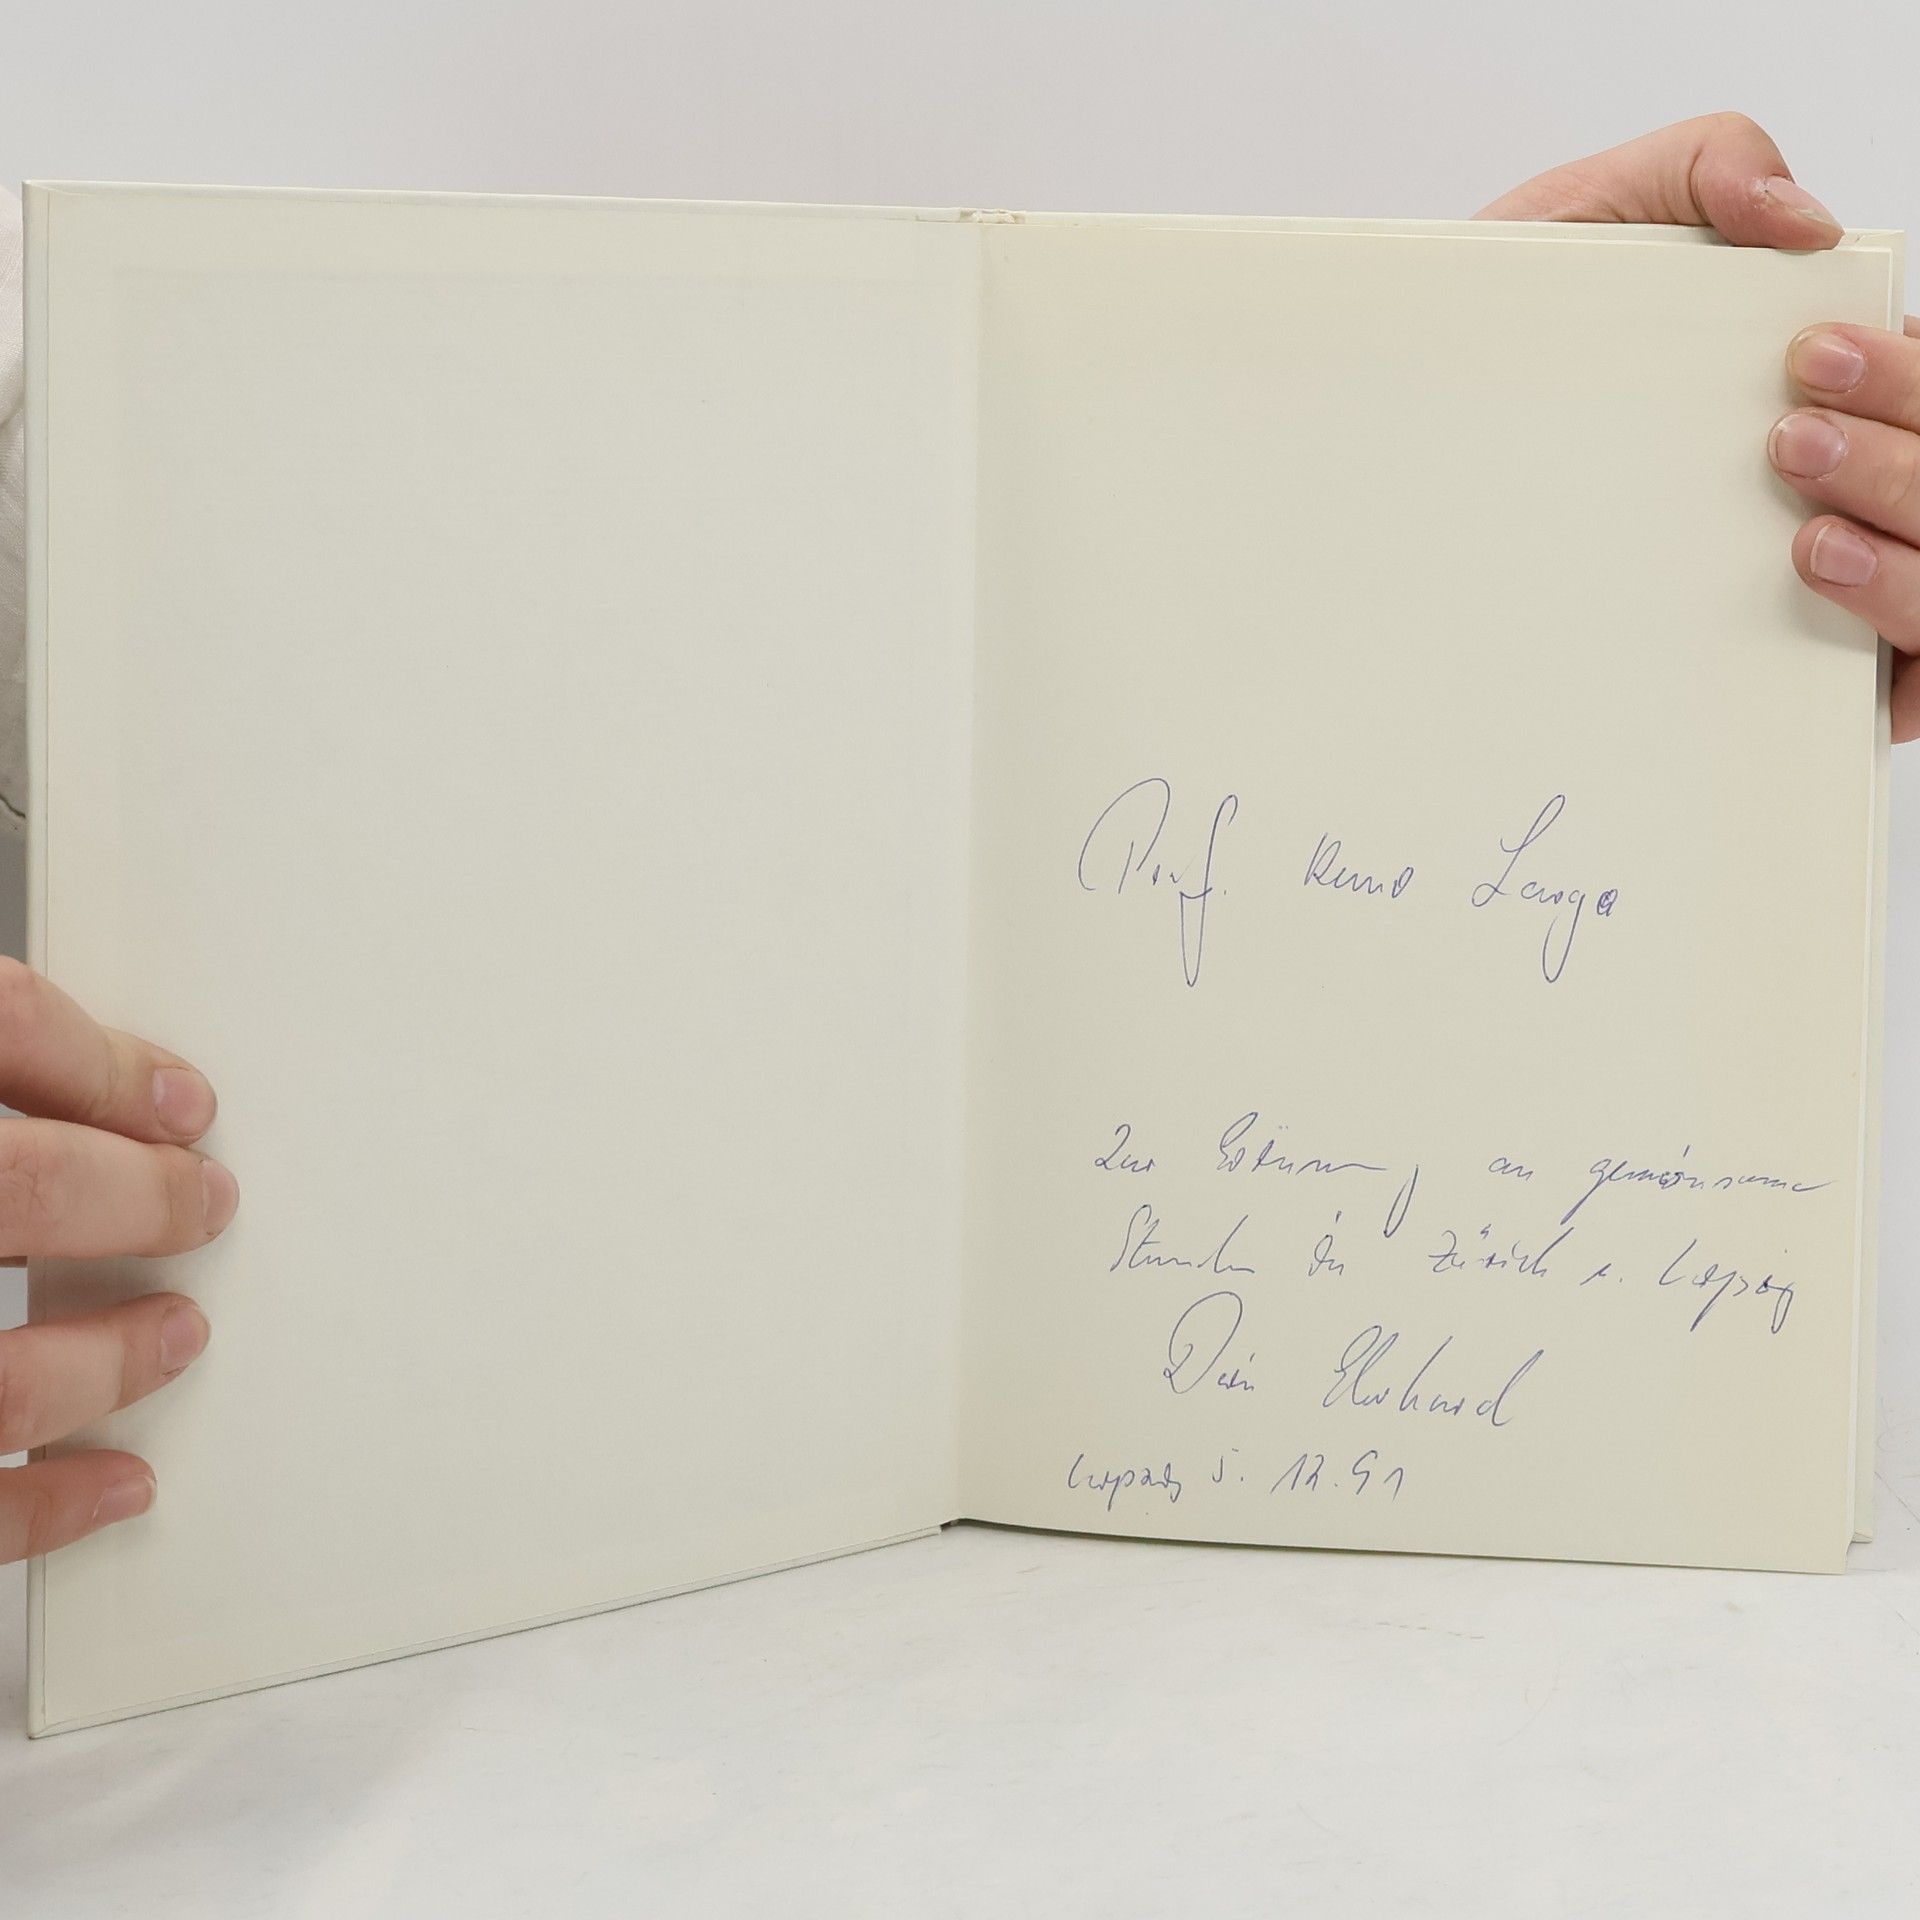 Prof. Benno Lange
Zur Erinnerung an gemeinsame
Stunden in Zürich u. Leipzig
Dein Eberhard
Leipzig 5. 12. 91